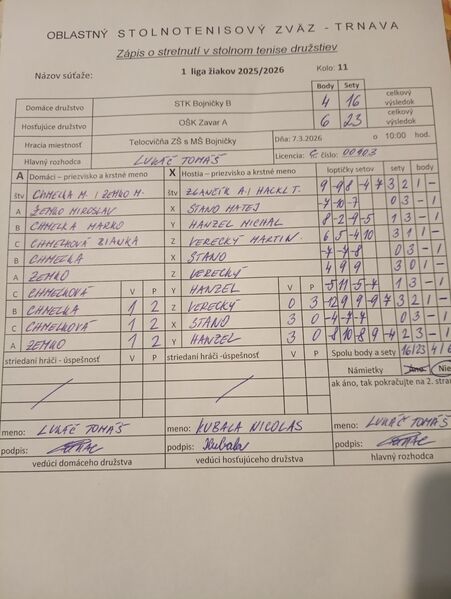 OBLASTNÝ STOLNOTENISOVÝ ZVÄZ - TRNAVA
Zápis o stretnutí v stolnom tenise družstiev
Názov súťaže: 1 liga žiakov 2025/2026 Kolo: 11
Body Sety
Domáce družstvo STK Bojničky B 4 16 celkový výsledok
Hosťujúce družstvo OŠK Zavar A 6 23 celkový výsledok
Hracia miestnosť Telocvičňa ZŠ s MŠ Bojničky Dňa: 7.3.2026 o 10:00 hod.
Hlavný rozhodca LUKÁČ TOMÁŠ Licencia: C. číslo: 00903
A Domáci – priezvisko a krstné meno X Hostia – priezvisko a krstné meno loptičky setov sety body
štv CHMELKA M. / ZEMKO M. štv ZLANČÍK A / HACKL T. 9 -9 8 -4 7 3 2 1 -
A ŽEMKO MIROSLAV X STANO MATEJ -7 -10 -7 0 3 - 1
B CHMELKA MARKO Y HANZEL MICHAL 8 -2 -9 -5 1 3 - 1
C CHMELKOVÁ Z VERECKÝ MARTIN 6 5 -4 10 3 1 1 -
B CHMELKA X STANO -7 -7 -8 0 3 - 1
A ZEMKO Z VERECKÝ 4 9 9 3 0 1 -
C CHMELKOVÁ V P Y HANZEL V P -5 11 -5 -7 1 3 - 1
B CHMELKA 1 2 Z VERECKÝ 0 3 -12 9 9 -9 7 3 2 1 -
C CHMELKOVÁ 1 2 X STANO 3 0 -4 -7 -7 0 3 - 1
A ZEMKO 1 2 Y HANZEL 3 0 -8 10 8 -9 -4 2 3 - 1
striedaní hráči - úspešnosť V P striedaní hráči -úspešnosť V P Spolu body a sety 16 23 4 6
Námietky Áno Nie
ak áno, tak pokračujte na 2. stran
meno: LUKÁČ TOMÁŠ meno: KUBALA NICOLAS meno: LUKÁČ TOMÁŠ
podpis: podpis: Kubala podpis:
vedúci domáceho družstva vedúci hosťujúceho družstva hlavný rozhodca